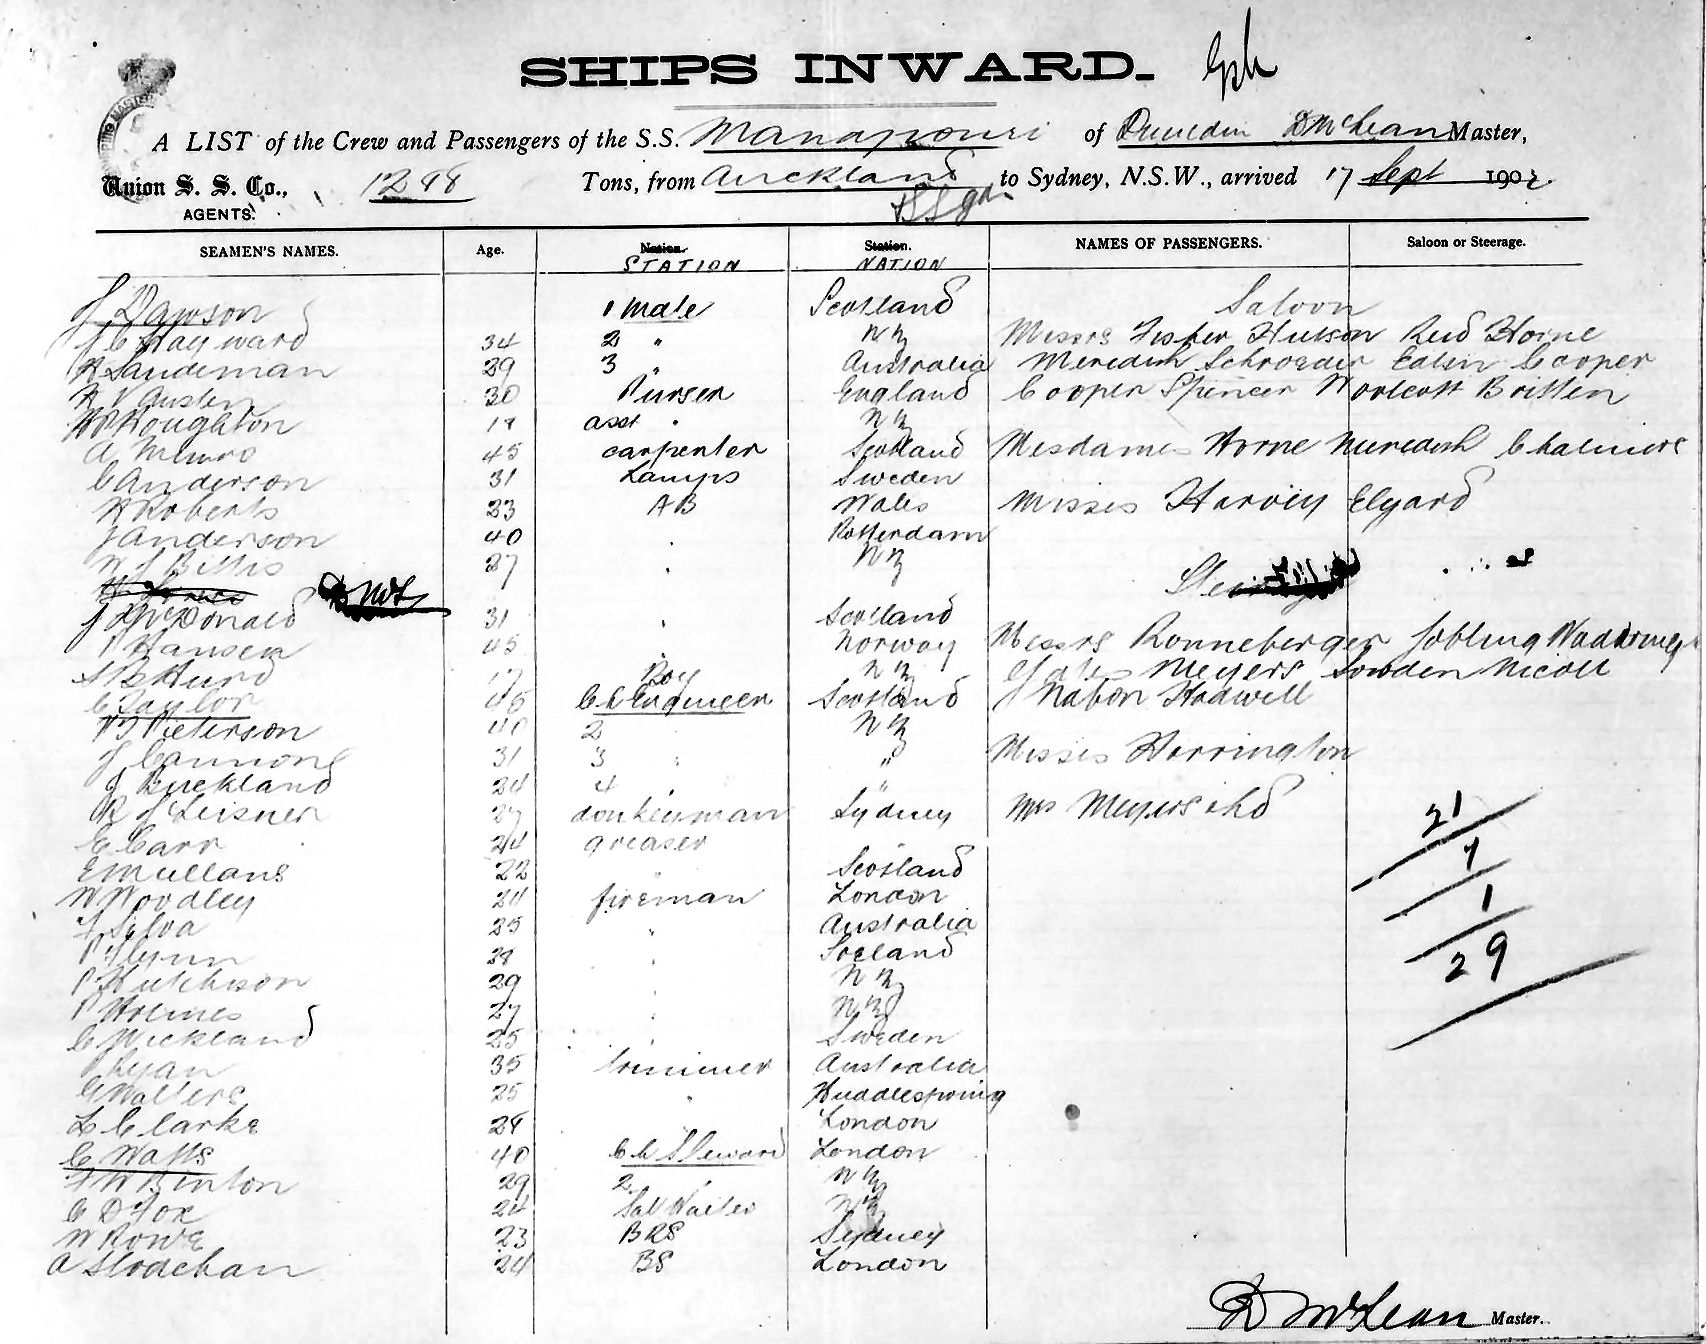 SHIPS INWARD.
A LIST of the Crew and Passengers of the S.S. Manapouri of Dunedin D McLean Master,
Union S. S. Co., 1298 Tons, from Auckland to Sydney, N.S.W., arrived 17 Sept 1902
AGENTS.
SEAMEN'S NAMES. Age. Nation. Station. NAMES OF PASSENGERS. Saloon or Steerage.
STATION NATION
J Dawson 1 mate Scotland Saloon
J C Hayward 34 2 " NZ Messrs Fisher Hutson Reid Horne
H Sandeman 29 3 " Australia Meredith Schroeder Eakin Cooper
H V Austen 30 Purser England Cooper Spencer Woolcott Britten
W Houghton 19 asst " NZ
A Munro 45 carpenter Scotland Mesdames Horne Meredith Chalmers
C Anderson 31 Lamps Sweden
H Roberts 23 AB Wales Misses Harvey Elyard
J Anderson 40 Rotterdam
W J Bettis 27 NZ
J McDonald 31 Scotland
P Hansen 45 Norway Messrs Ronneberger Jobling
S B Hurd 17 Boy NZ Yates Meyers Sowden Nicoll
C Taylor 46 Ch Engineer Scotland Nabon Hadwell
Peterson 40 2 NZ
J Cannons 31 3 " " Misses Harrington
J Buckland 24 4 "
R J Leisner 27 donkeyman Sydney Mrs Meyers chd
C Carr 24 greaser 21
E Mullans 22 Scotland 7
W Woodley 24 fireman London 1
F Silva 25 " Australia
P Flynn 28 Ireland 29
P Hutchison 29 NZ
P Holmes 27 NZ
C Wickland 25 Sweden
P Ryan 35 trimmer Australia
G Walters 25 "
L Clarke 28 London
C Watts 40 Ch Steward London
F W Binton 29 2 NZ
C D Fox 24 Sal Waiter NZ
W Rowe 23 BRS Sydney
A Strachan 24 BS London
D McLean Master.